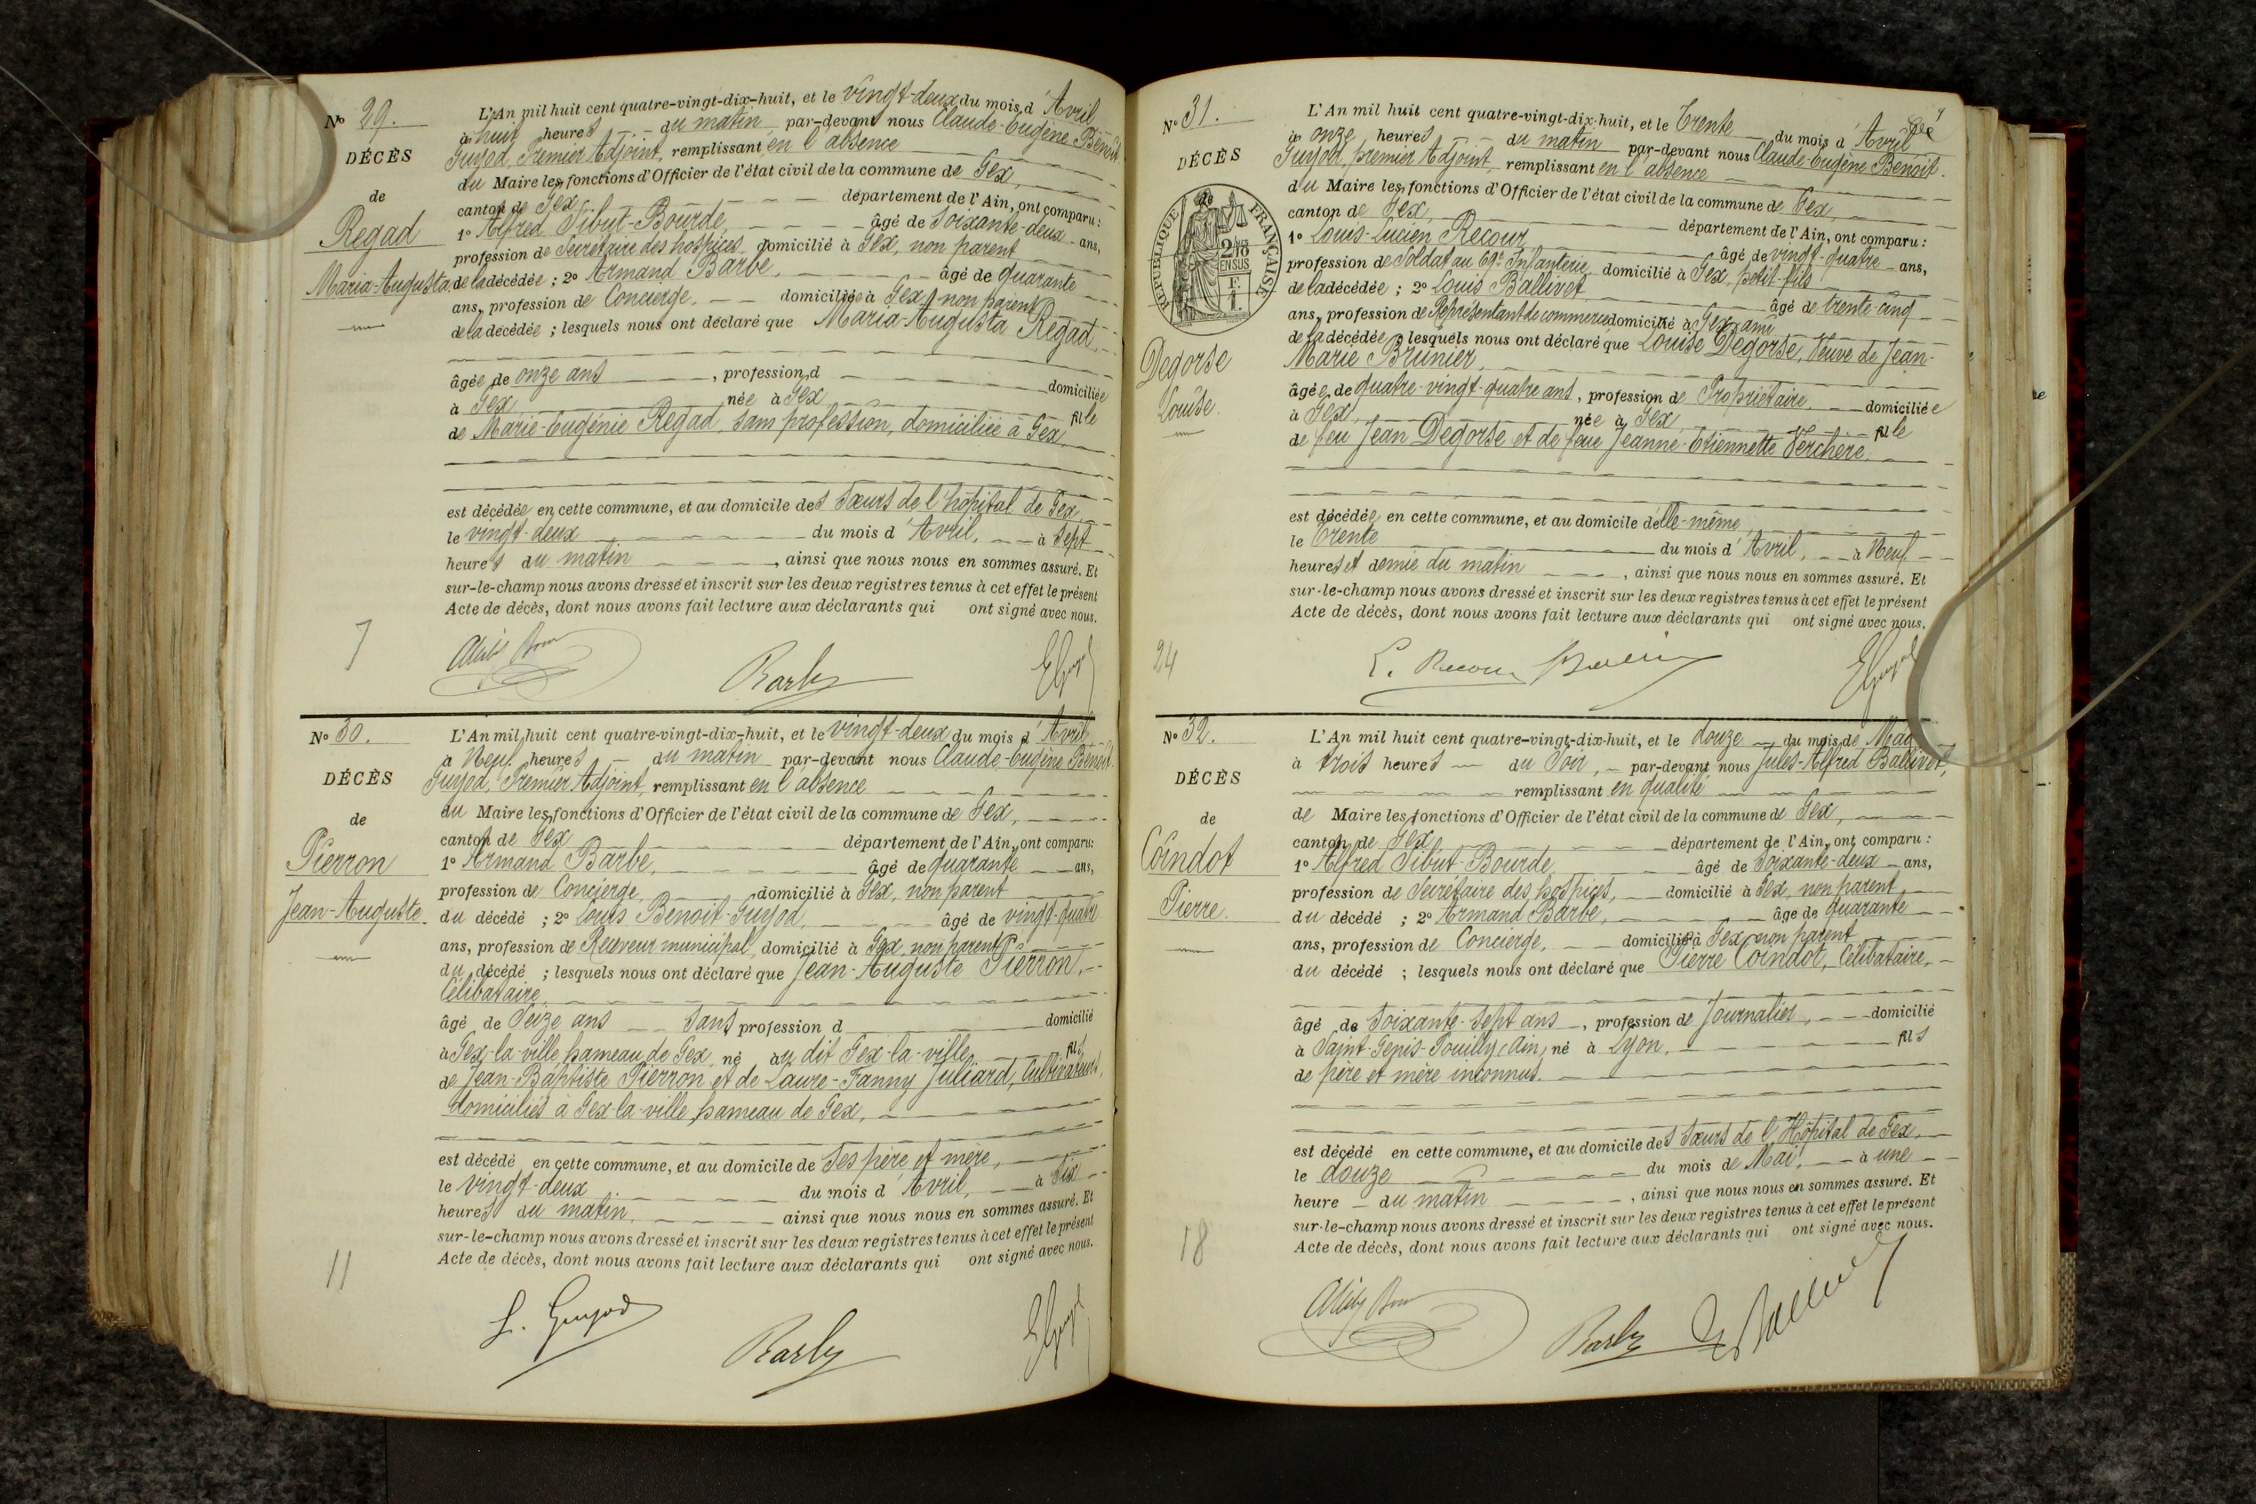 N° 29.
DÉCÈS
de
Regad
Maria-Augusta.
L'An mil huit cent quatre-vingt-dix-huit, et le vingt-deux du mois d'Avril
à huit heures du matin par-devant nous Claude-Eugène Benoit
Guyod, Premier Adjoint, remplissant en l'absence
du Maire les fonctions d'Officier de l'état civil de la commune de Gex,
canton de Gex département de l'Ain, ont comparu :
1° Alfred Tibut-Bourde, âgé de Soixante-deux ans,
profession de Secrétaire des hospices domicilié à Gex, non parent
de la décédée ; 2° Armand Barbe, âgé de quarante
ans, profession de Concierge, domicilié à Gex, non parent
de la décédée ; lesquels nous ont déclaré que Maria-Augusta Regad,
âgée de onze ans, profession d domiciliée
à Gex née à Gex, fille
de Marie-Eugénie Regad, sans profession, domiciliée à Gex,
est décédée en cette commune, et au domicile des Sœurs de l'hôpital de Gex
le vingt-deux du mois d'Avril, à Sept
heures du matin, ainsi que nous nous en sommes assuré. Et
sur-le-champ nous avons dressé et inscrit sur les deux registres tenus à cet effet le présent
Acte de décès, dont nous avons fait lecture aux déclarants qui ont signé avec nous.
7
Barbe
EGuyod
N° 30.
DÉCÈS
de
Pierron
Jean-Auguste.
L'An mil huit cent quatre-vingt-dix-huit, et le vingt-deux du mois d'Avril
à Neuf heures du matin par-devant nous Claude-Eugène Benoit
Guyod, Premier Adjoint, remplissant en l'absence
du Maire les fonctions d'Officier de l'état civil de la commune de Gex,
canton de Gex département de l'Ain, ont comparu:
1° Armand Barbe, âgé de quarante ans,
profession de Concierge, domicilié à Gex, non parent
du décédé ; 2° Louis Benoit-Guyod, âgé de vingt-quatre
ans, profession de Receveur municipal, domicilié à Gex, non parent
du décédé ; lesquels nous ont déclaré que Jean-Auguste Pierron,
Célibataire
âgé de Seize ans Sans profession d domicilié
à Gex-la-ville hameau de Gex, né au dit Gex-la-ville fils
de Jean-Baptiste Pierron et de Laure-Fanny Juliard, Cultivateurs,
domiciliés à Gex-la-ville, hameau de Gex,
est décédé en cette commune, et au domicile de Ses père et mère,
le vingt-deux du mois d'Avril, à Six
heures du matin, ainsi que nous nous en sommes assuré. Et
sur-le-champ nous avons dressé et inscrit sur les deux registres tenus à cet effet le présent
Acte de décès, dont nous avons fait lecture aux déclarants qui ont signé avec nous.
11
L. Guyod
Barbe
EGuyod
N° 31.
DÉCÈS
de
RÉPUBLIQUE FRANÇAISE
2/10
EN SUS
F.
1.
Degorse
Louise.
L'An mil huit cent quatre-vingt-dix-huit, et le Trente du mois d'Avril
à onze heures du matin par-devant nous Claude-Eugène Benoit
Guyod, premier Adjoint, remplissant en l'absence
du Maire les fonctions d'Officier de l'état civil de la commune de Gex,
canton de Gex, département de l'Ain, ont comparu :
1° Louis-Lucien Recour, âgé de vingt-quatre ans,
profession de Soldat au 69e Infanterie domicilié à Gex, petit-fils
de la décédée ; 2° Louis Ballivet âgé de trente-cinq
ans, profession de Représentant de commerce domicilié à Gex, ami
de la décédée ; lesquels nous ont déclaré que Louise Degorse, Veuve de Jean-
Marie Brunier,
âgée de quatre-vingt-quatre ans, profession de Propriétaire, domiciliée
à Gex, née à Gex, fille
de feu Jean Degorse et de feue Jeanne-Etiennette Verchère
est décédée en cette commune, et au domicile d'elle-même,
le Trente du mois d'Avril, à Neuf
heures et demie du matin, ainsi que nous nous en sommes assuré. Et
sur-le-champ nous avons dressé et inscrit sur les deux registres tenus à cet effet le présent
Acte de décès, dont nous avons fait lecture aux déclarants qui ont signé avec nous.
24
L. Recour
EGuyod
N° 32.
DÉCÈS
de
Coindot
Pierre.
L'An mil huit cent quatre-vingt-dix-huit, et le douze du mois de Mai
à trois heures du Soir, par-devant nous Jules-Alfred Ballivet,
remplissant en qualité
de Maire les fonctions d'Officier de l'état civil de la commune de Gex,
canton de Gex département de l'Ain, ont comparu :
1° Alfred Tibut-Bourde, âgé de Soixante-deux ans,
profession de Secrétaire des hospices, domicilié à Gex, non parent,
du décédé ; 2° Armand Barbe, âgé de quarante
ans, profession de Concierge, domicilié à Gex, non parent
du décédé ; lesquels nous ont déclaré que Pierre Coindot, Célibataire,
âgé de Soixante-Sept ans, profession de Journalier, domicilié
à Saint-Genis-Pouilly (Ain) né à Lyon, fils
de père et mère inconnus.
est décédé en cette commune, et au domicile des Sœurs de l'Hôpital de Gex,
le douze du mois de Mai, à une
heure du matin, ainsi que nous nous en sommes assuré. Et
sur-le-champ nous avons dressé et inscrit sur les deux registres tenus à cet effet le présent
Acte de décès, dont nous avons fait lecture aux déclarants qui ont signé avec nous.
18
Barbe